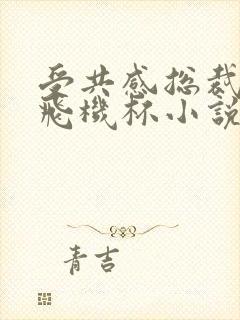 受共感总裁
飛機杯小說
青吉